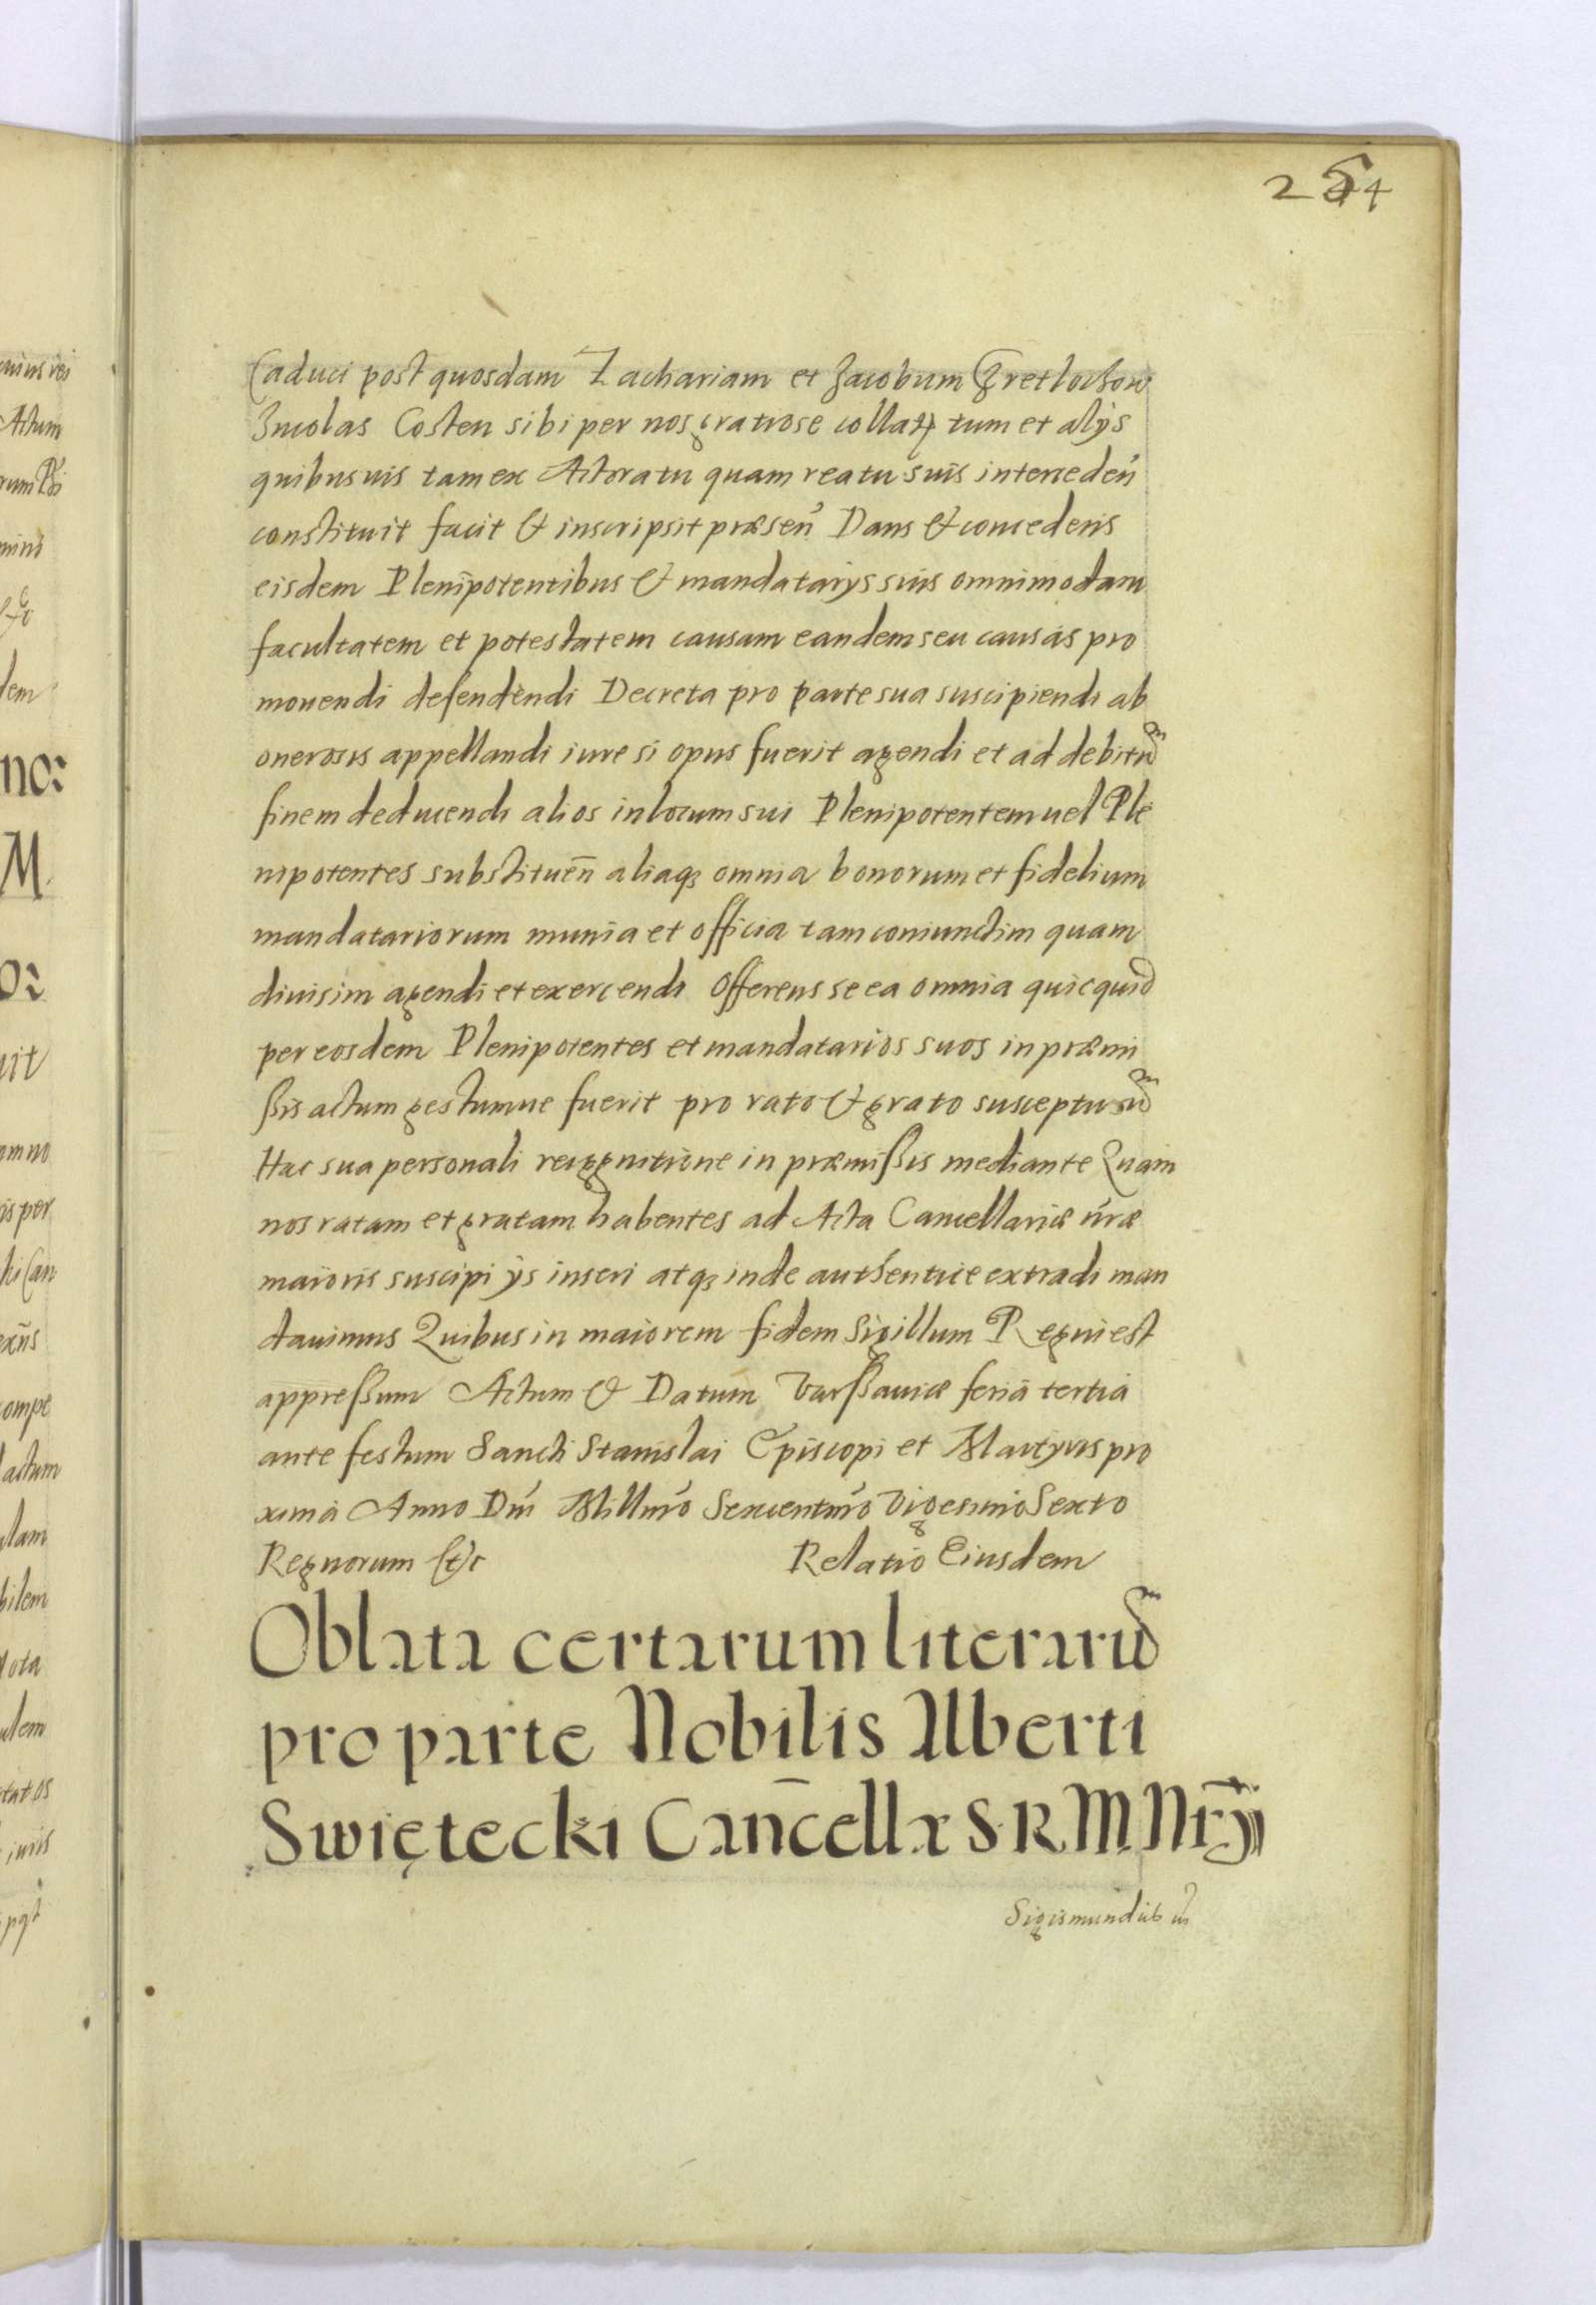 254
Caduci post quosdam Zachariam et Jacobum Gretlochow
Incolas Costen sibi per nos gratiose collatꝝ tum et alÿs
quibusuis tam ex Actoratu quam reatu suis interceden̄
constituit facit & inscripsit præsen̄ Dans & concedens
eisdem Plenipotentibus & mandatarÿs suis omnimodam
facultatem et potestatem causam eandem seu causas pro
mouendi defendendi Decreta pro parte sua suscipiendi ab
onerosis appellandi iure si opus fuerit agendi et ad debitū
finem deducendi alios in locum sui Plenipotentem uel Ple
nipotentes substituen̄ aliaqꝫ omnia bonorum et fidelium
mandatariorum munia et officia tam coniunctim quam
diuisim agendi et exercendi Offerens se ea omnia quicquid
per eosdem Plenipotentes et mandatarios suos in præmi
ßis actum gestumue fuerit pro rato & grato suscepturū
Hac sua personali recognitione in præmißis mediante Quam
nos ratam et gratam habentes ad Acta Cancellariæ nr̄æ
maioris suscipi ÿs inseri atqꝫ inde authentice extradi man
dauimus Quibus in maiorem fidem Sigillum Regni est
appreßum Actum & Datum Varßauiæ feria tertia
ante festum Sancti Stanislai Episcopi et Martyris pro
xima Anno Dn̄i Millm̄o Sexcentm̄o Vigesimo Sexto
Regnorum etc Relatio Eiusdem
Oblata certarum literarū
pro parte Nobilis Alberti
Swiętecki Can̄cellæ S. R. M. Nrÿ
Sigismundus